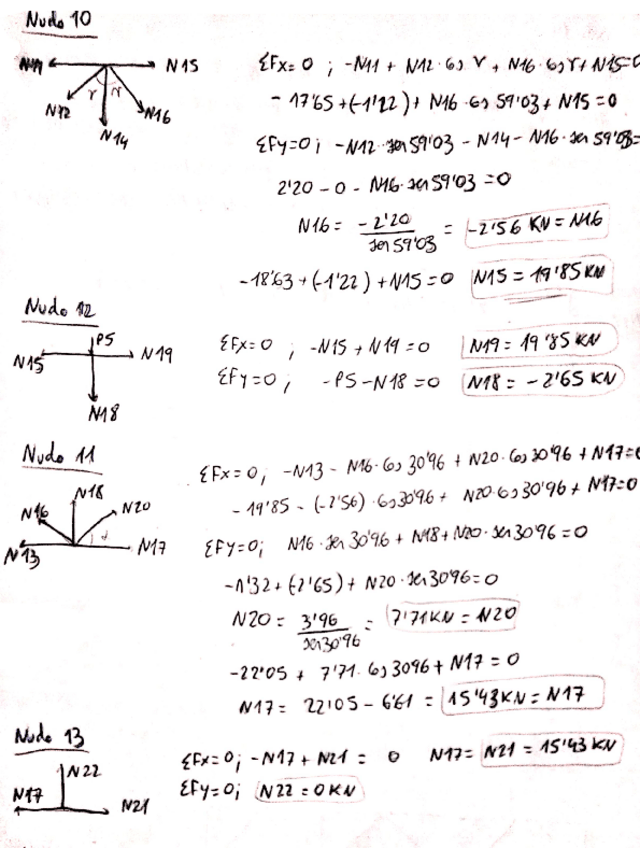 Nudo 10
N11 N15
γ γ
N12 N16
N14
ΣFx=0 ; -N11 + N12·cos γ + N16·cos γ + N15=0
-17'65+(-1'22)+ N16·cos 59'03 + N15 = 0
ΣFy=0; -N12·sen59'03 - N14 - N16·sen 59'03=
2'20 - 0 - N16·sen 59'03 = 0
N16 = -2'20 / sen 59'03 = -2'56 KN = N16
-18'63 + (-1'22) + N15 = 0 N15 = 19'85 KN
Nudo 12
P5
N15 N19
N18
ΣFx=0 ; -N15 + N19 = 0 N19 = 19'85 KN
ΣFy=0; -P5 - N18 = 0 N18 = -2'65 KN
Nudo 11
N18
N16 N20
N13 N17
ΣFx=0; -N13 - N16·cos 30'96 + N20·cos 30'96 + N17=0
-19'85 - (-2'56)·cos30'96 + N20·cos30'96 + N17=0
ΣFy=0; N16·sen 30'96 + N18 + N20·sen 30'96 = 0
-1'32 + (-2'65) + N20·sen 30'96 = 0
N20 = 3'96 / sen30'96 = 7'71 KN = N20
-22'05 + 7'71·cos 3096 + N17 = 0
N17 = 22'05 - 6'61 = 15'43 KN = N17
Nudo 13
N22
N17 N21
ΣFx=0; -N17 + N21 = 0 N17 = N21 = 15'43 KN
ΣFy=0; N22 = 0 KN